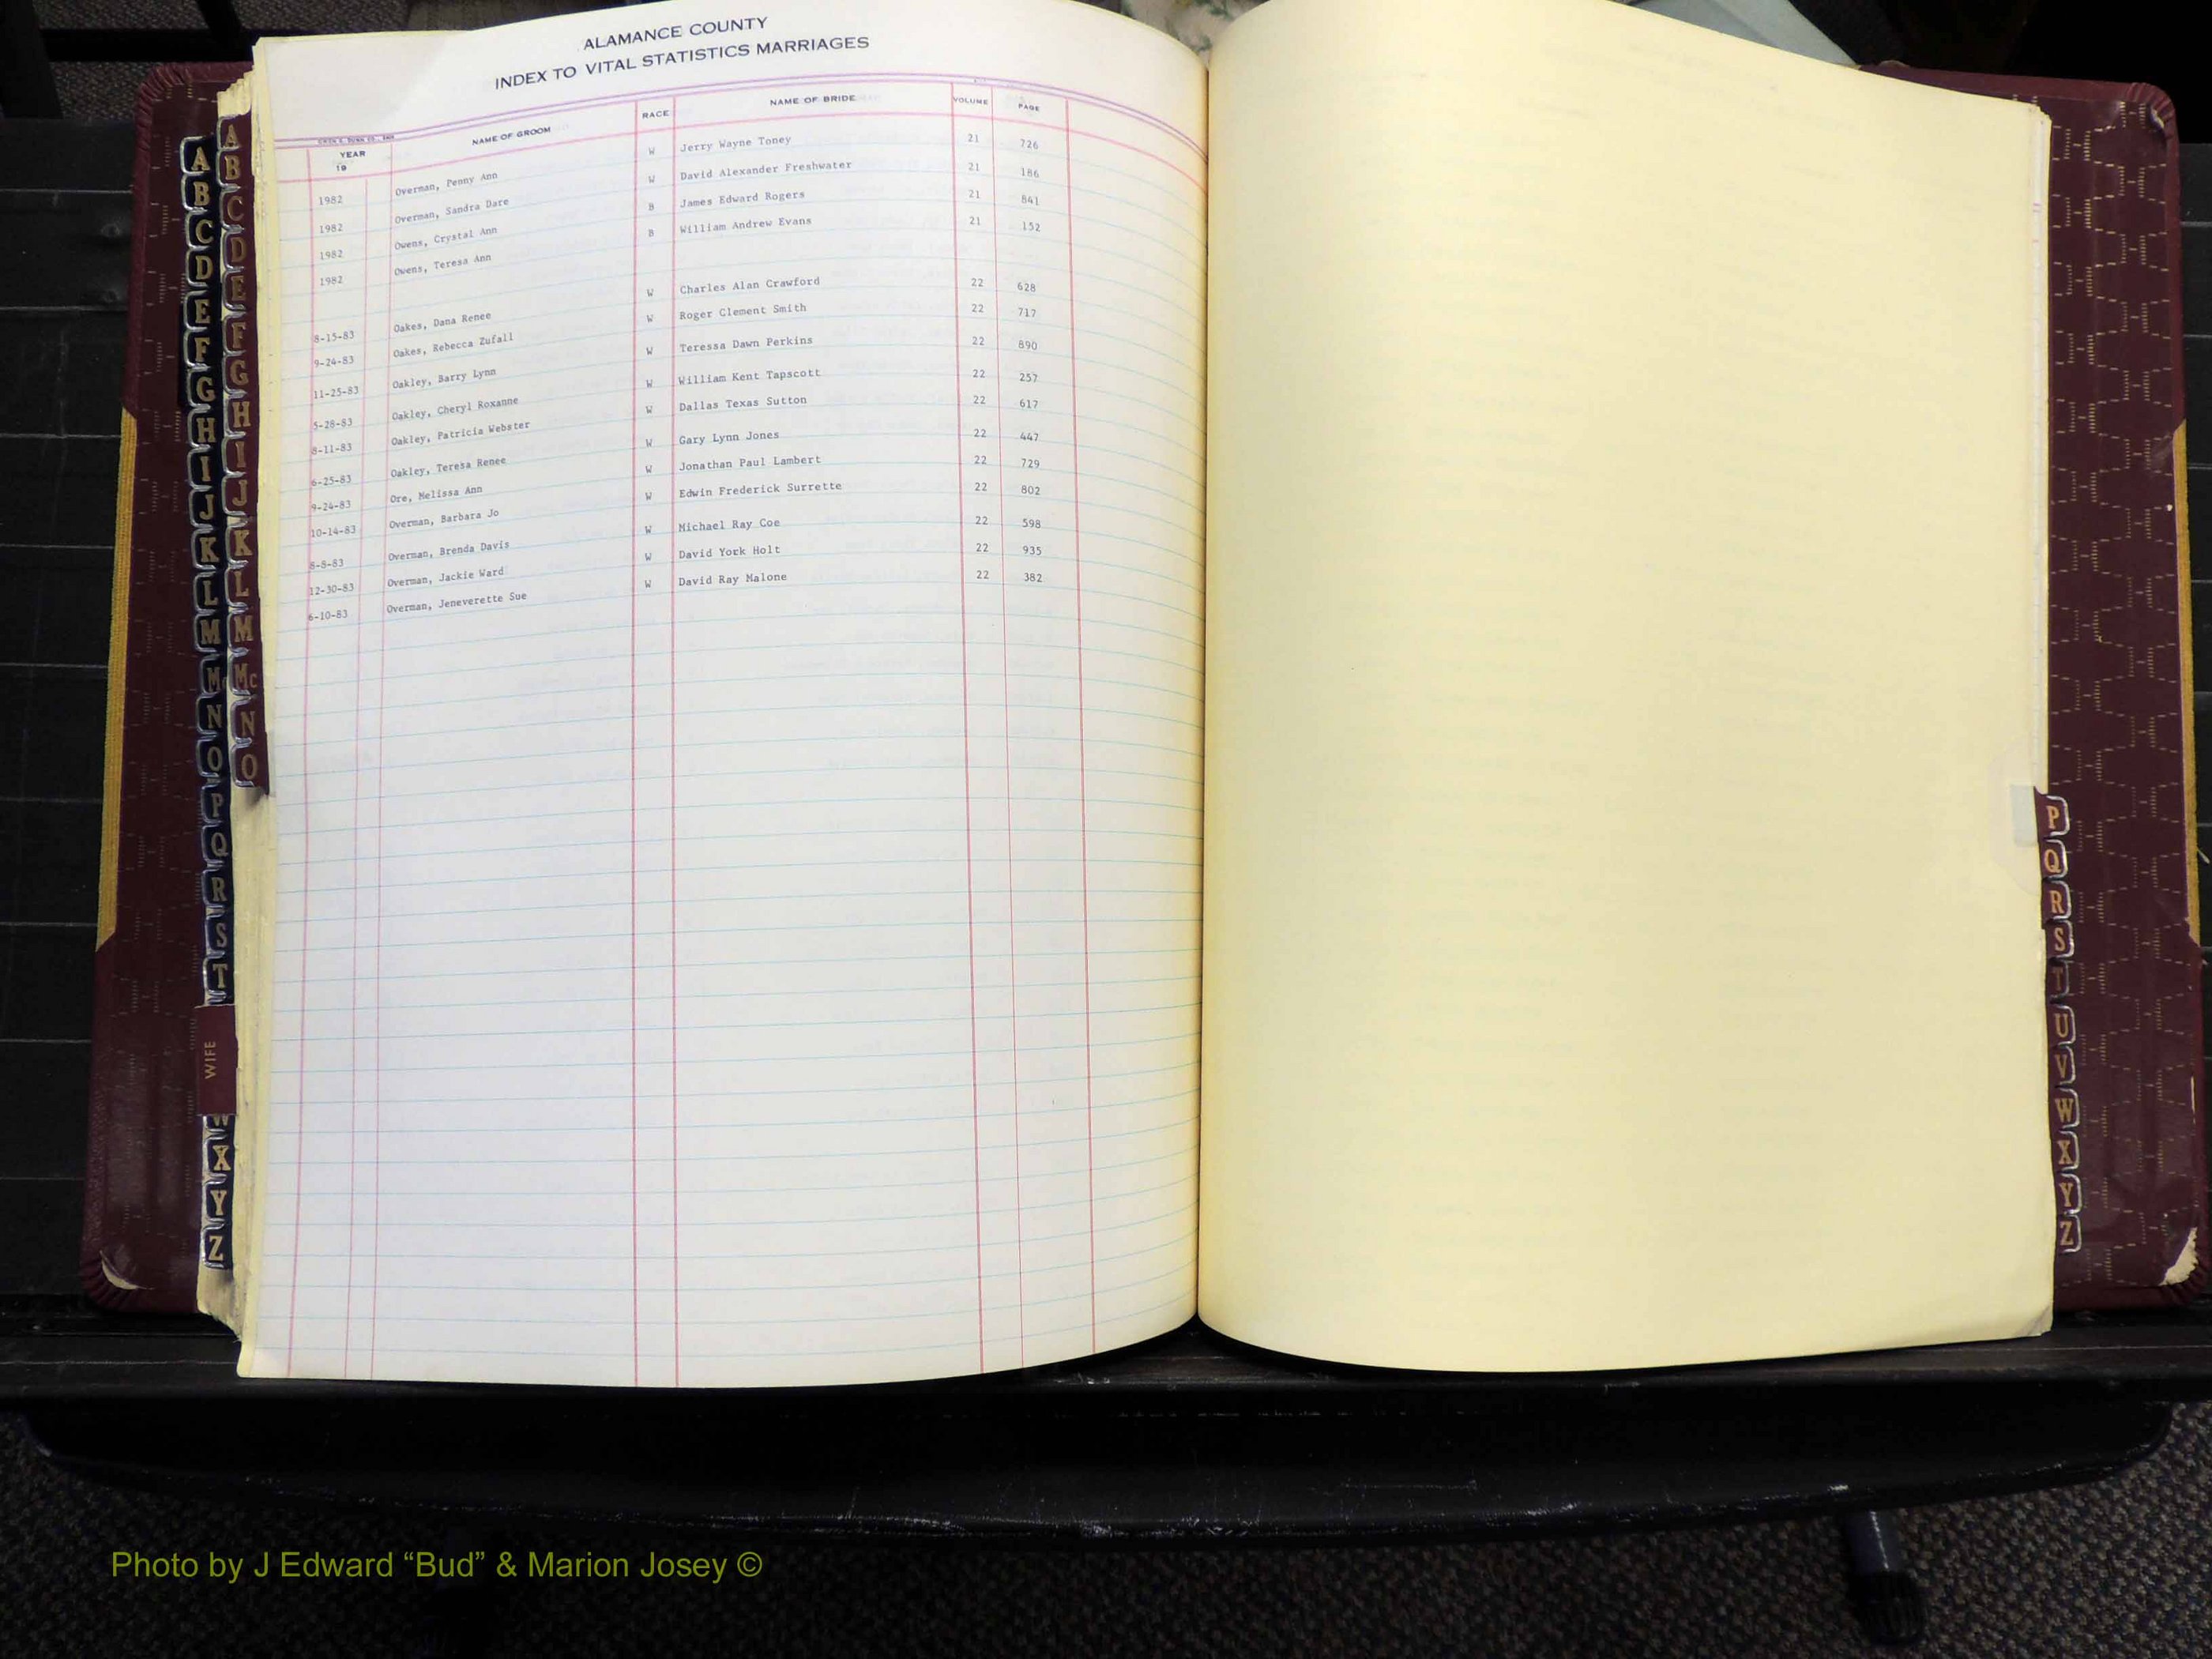 ALAMANCE COUNTY
INDEX TO VITAL STATISTICS MARRIAGES
YEAR 19 NAME OF GROOM RACE NAME OF BRIDE VOLUME PAGE
1982 Overman, Penny Ann W Jerry Wayne Toney 21 726
1982 Overman, Sandra Dare W David Alexander Freshwater 21 186
1982 Owens, Crystal Ann B James Edward Rogers 21 841
1982 Owens, Teresa Ann B William Andrew Evans 21 152
8-15-83 Oakes, Dana Renee W Charles Alan Crawford 22 628
9-24-83 Oakes, Rebecca Zufall W Roger Clement Smith 22 717
11-25-83 Oakley, Barry Lynn W Teressa Dawn Perkins 22 890
5-28-83 Oakley, Cheryl Roxanne W William Kent Tapscott 22 257
8-11-83 Oakley, Patricia Webster W Dallas Texas Sutton 22 617
6-25-83 Oakley, Teresa Renee W Gary Lynn Jones 22 447
9-24-83 Ore, Melissa Ann W Jonathan Paul Lambert 22 729
10-14-83 Overman, Barbara Jo W Edwin Frederick Surrette 22 802
8-8-83 Overman, Brenda Davis W Michael Ray Coe 22 598
12-30-83 Overman, Jackie Ward W David York Holt 22 935
6-10-83 Overman, Jeneverette Sue W David Ray Malone 22 382
A
B
C
D
E
F
G
H
I
J
K
L
M
M
N
O
P
Q
R
S
T
WIFE
W
X
Y
Z
A
B
C
D
E
F
G
H
I
J
K
L
M
Mc
N
O
P
Q
R
S
T
U
V
W
X
Y
Z
Photo by J Edward “Bud” & Marion Josey ©